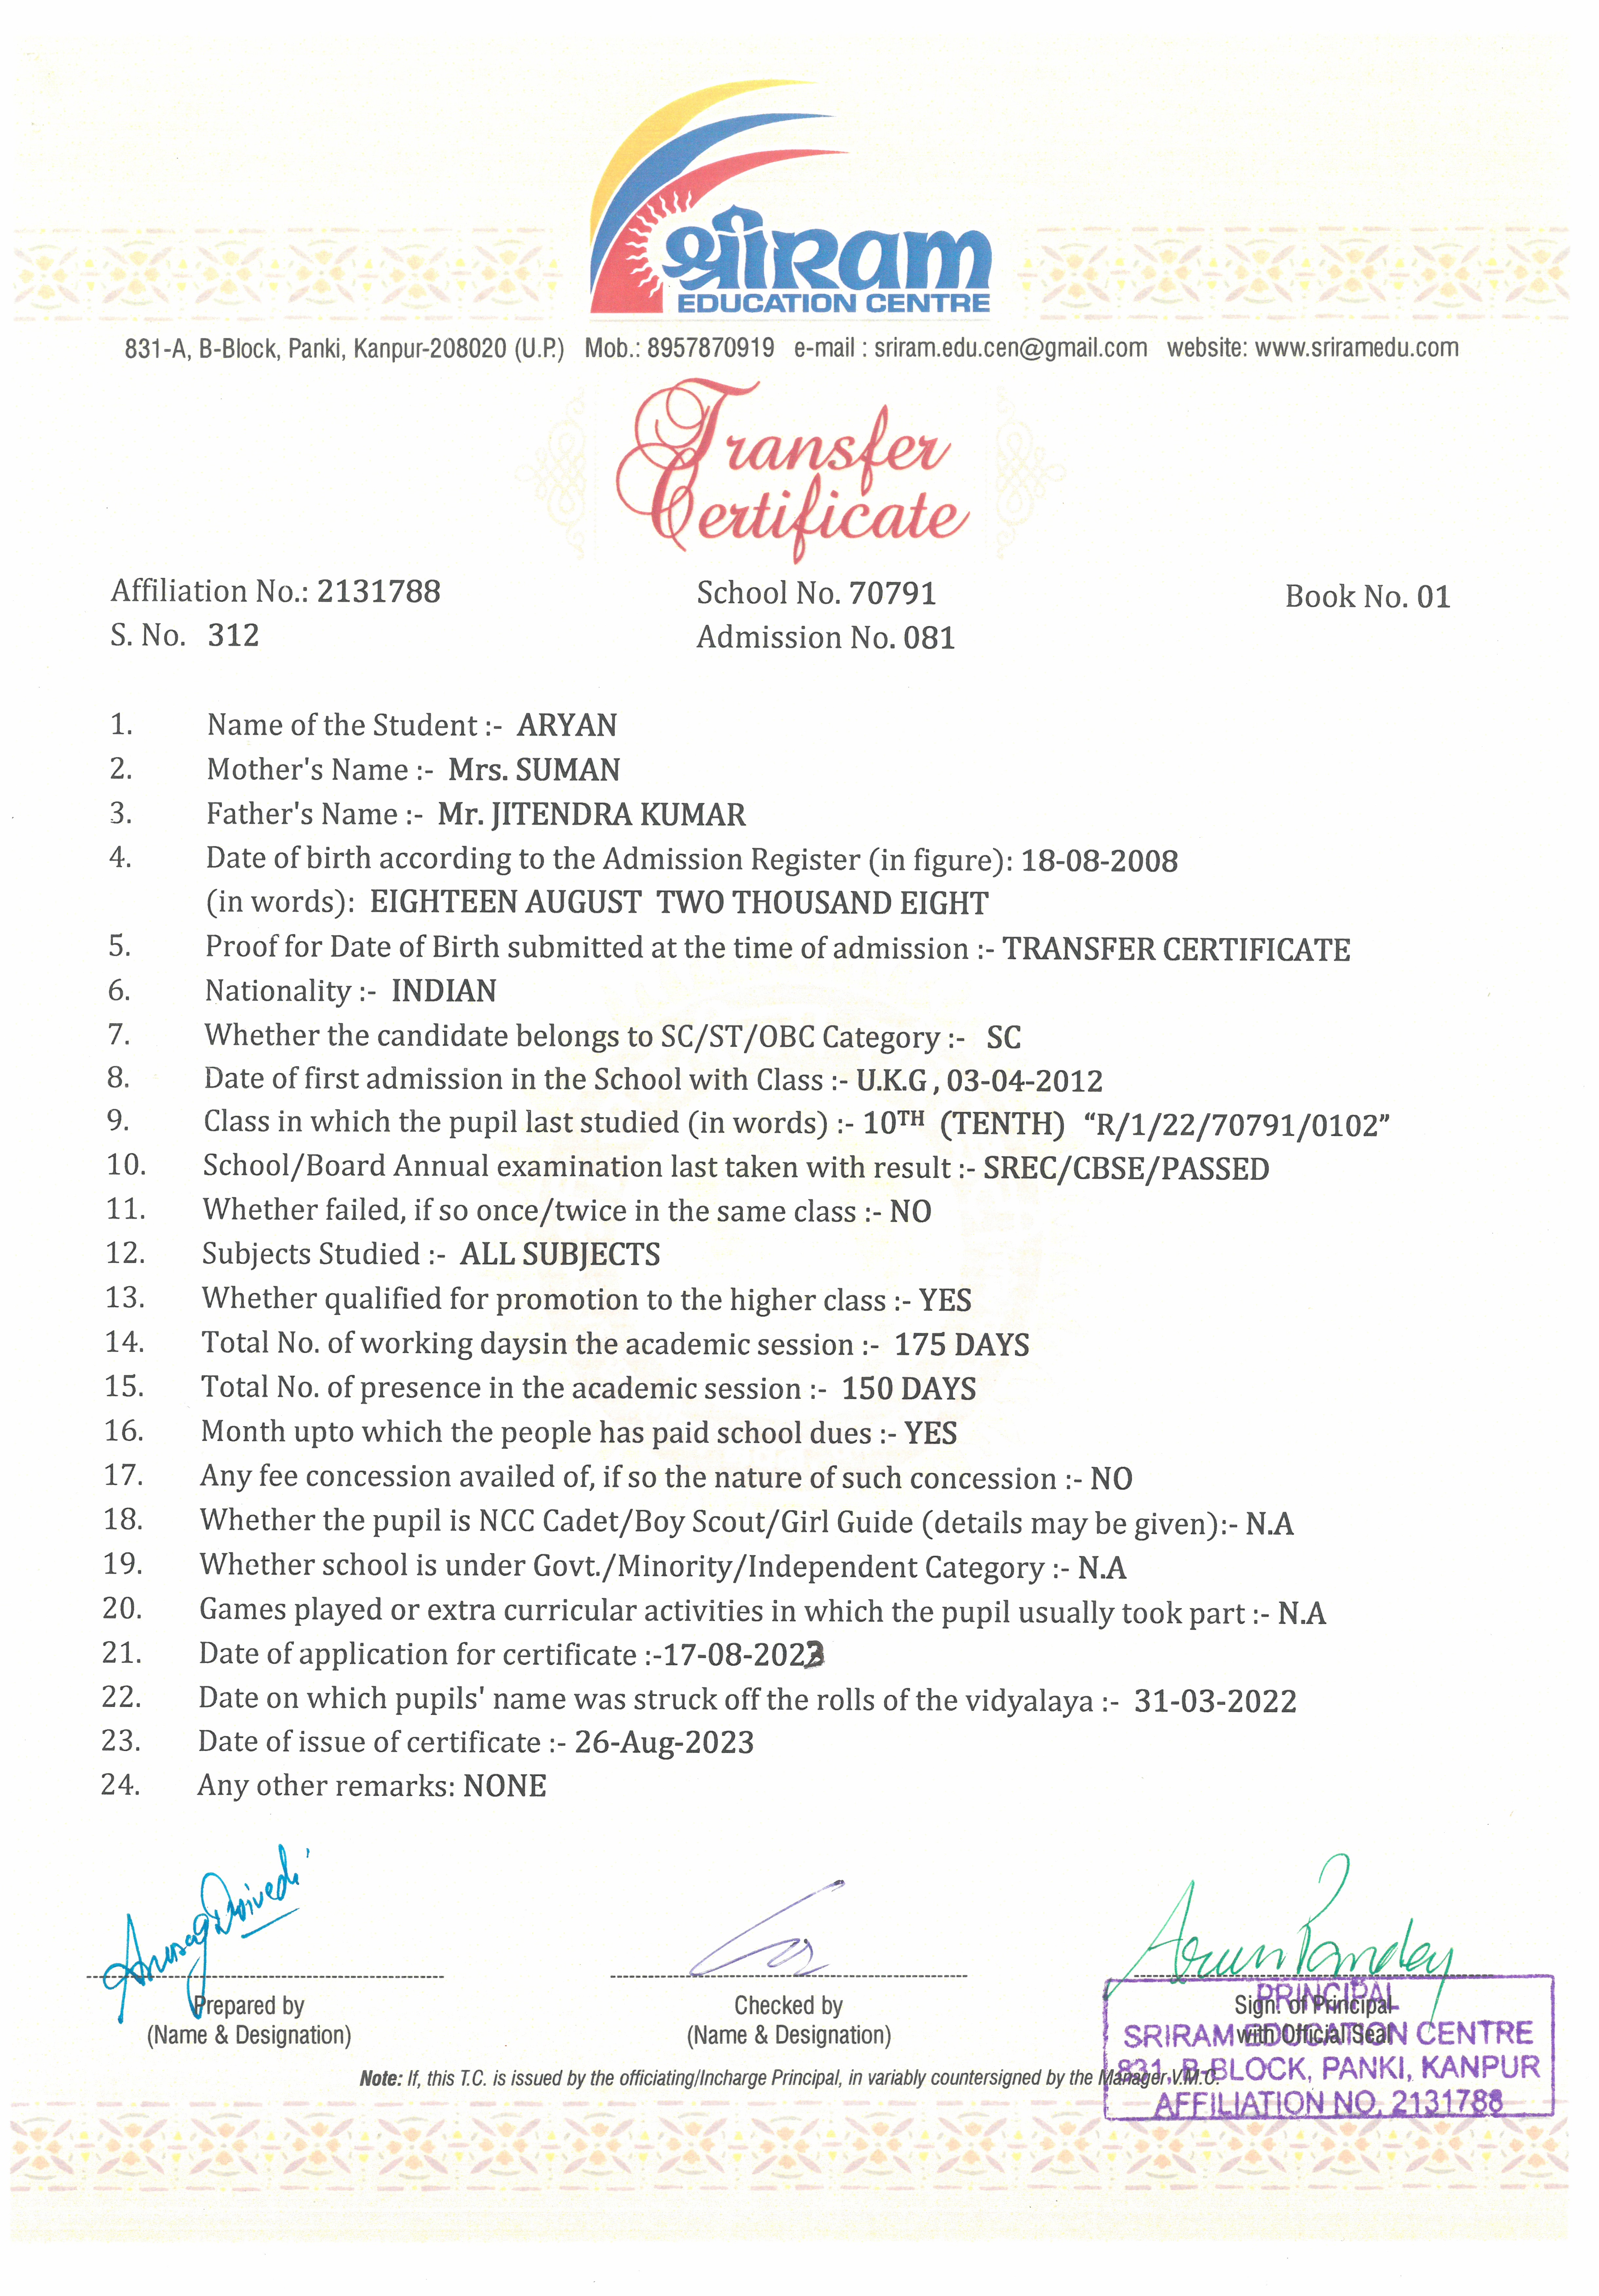 श्रीRam
EDUCATION CENTRE
831-A, B-Block, Panki, Kanpur-208020 (U.P.) Mob.: 8957870919 e-mail : sriram.edu.cen@gmail.com website: www.sriramedu.com
Transfer
Certificate
Affiliation No.: 2131788 School No. 70791 Book No. 01
S. No. 312 Admission No. 081
1. Name of the Student :- ARYAN
2. Mother's Name :- Mrs. SUMAN
3. Father's Name :- Mr. JITENDRA KUMAR
4. Date of birth according to the Admission Register (in figure): 18-08-2008
(in words): EIGHTEEN AUGUST TWO THOUSAND EIGHT
5. Proof for Date of Birth submitted at the time of admission :- TRANSFER CERTIFICATE
6. Nationality :- INDIAN
7. Whether the candidate belongs to SC/ST/OBC Category :- SC
8. Date of first admission in the School with Class :- U.K.G , 03-04-2012
9. Class in which the pupil last studied (in words) :- 10TH (TENTH) “R/1/22/70791/0102”
10. School/Board Annual examination last taken with result :- SREC/CBSE/PASSED
11. Whether failed, if so once/twice in the same class :- NO
12. Subjects Studied :- ALL SUBJECTS
13. Whether qualified for promotion to the higher class :- YES
14. Total No. of working daysin the academic session :- 175 DAYS
15. Total No. of presence in the academic session :- 150 DAYS
16. Month upto which the people has paid school dues :- YES
17. Any fee concession availed of, if so the nature of such concession :- NO
18. Whether the pupil is NCC Cadet/Boy Scout/Girl Guide (details may be given):- N.A
19. Whether school is under Govt./Minority/Independent Category :- N.A
20. Games played or extra curricular activities in which the pupil usually took part :- N.A
21. Date of application for certificate :-17-08-2023
22. Date on which pupils' name was struck off the rolls of the vidyalaya :- 31-03-2022
23. Date of issue of certificate :- 26-Aug-2023
24. Any other remarks: NONE
Anurag Dwivedi Arun Pandey
Prepared by Checked by Sign. of Principal
(Name & Designation) (Name & Designation) with Official Seal
PRINCIPAL
SRIRAM EDUCATION CENTRE
831, B-BLOCK, PANKI, KANPUR
AFFILIATION NO. 2131788
Note: If, this T.C. is issued by the officiating/Incharge Principal, in variably countersigned by the Manager.V.M.C.